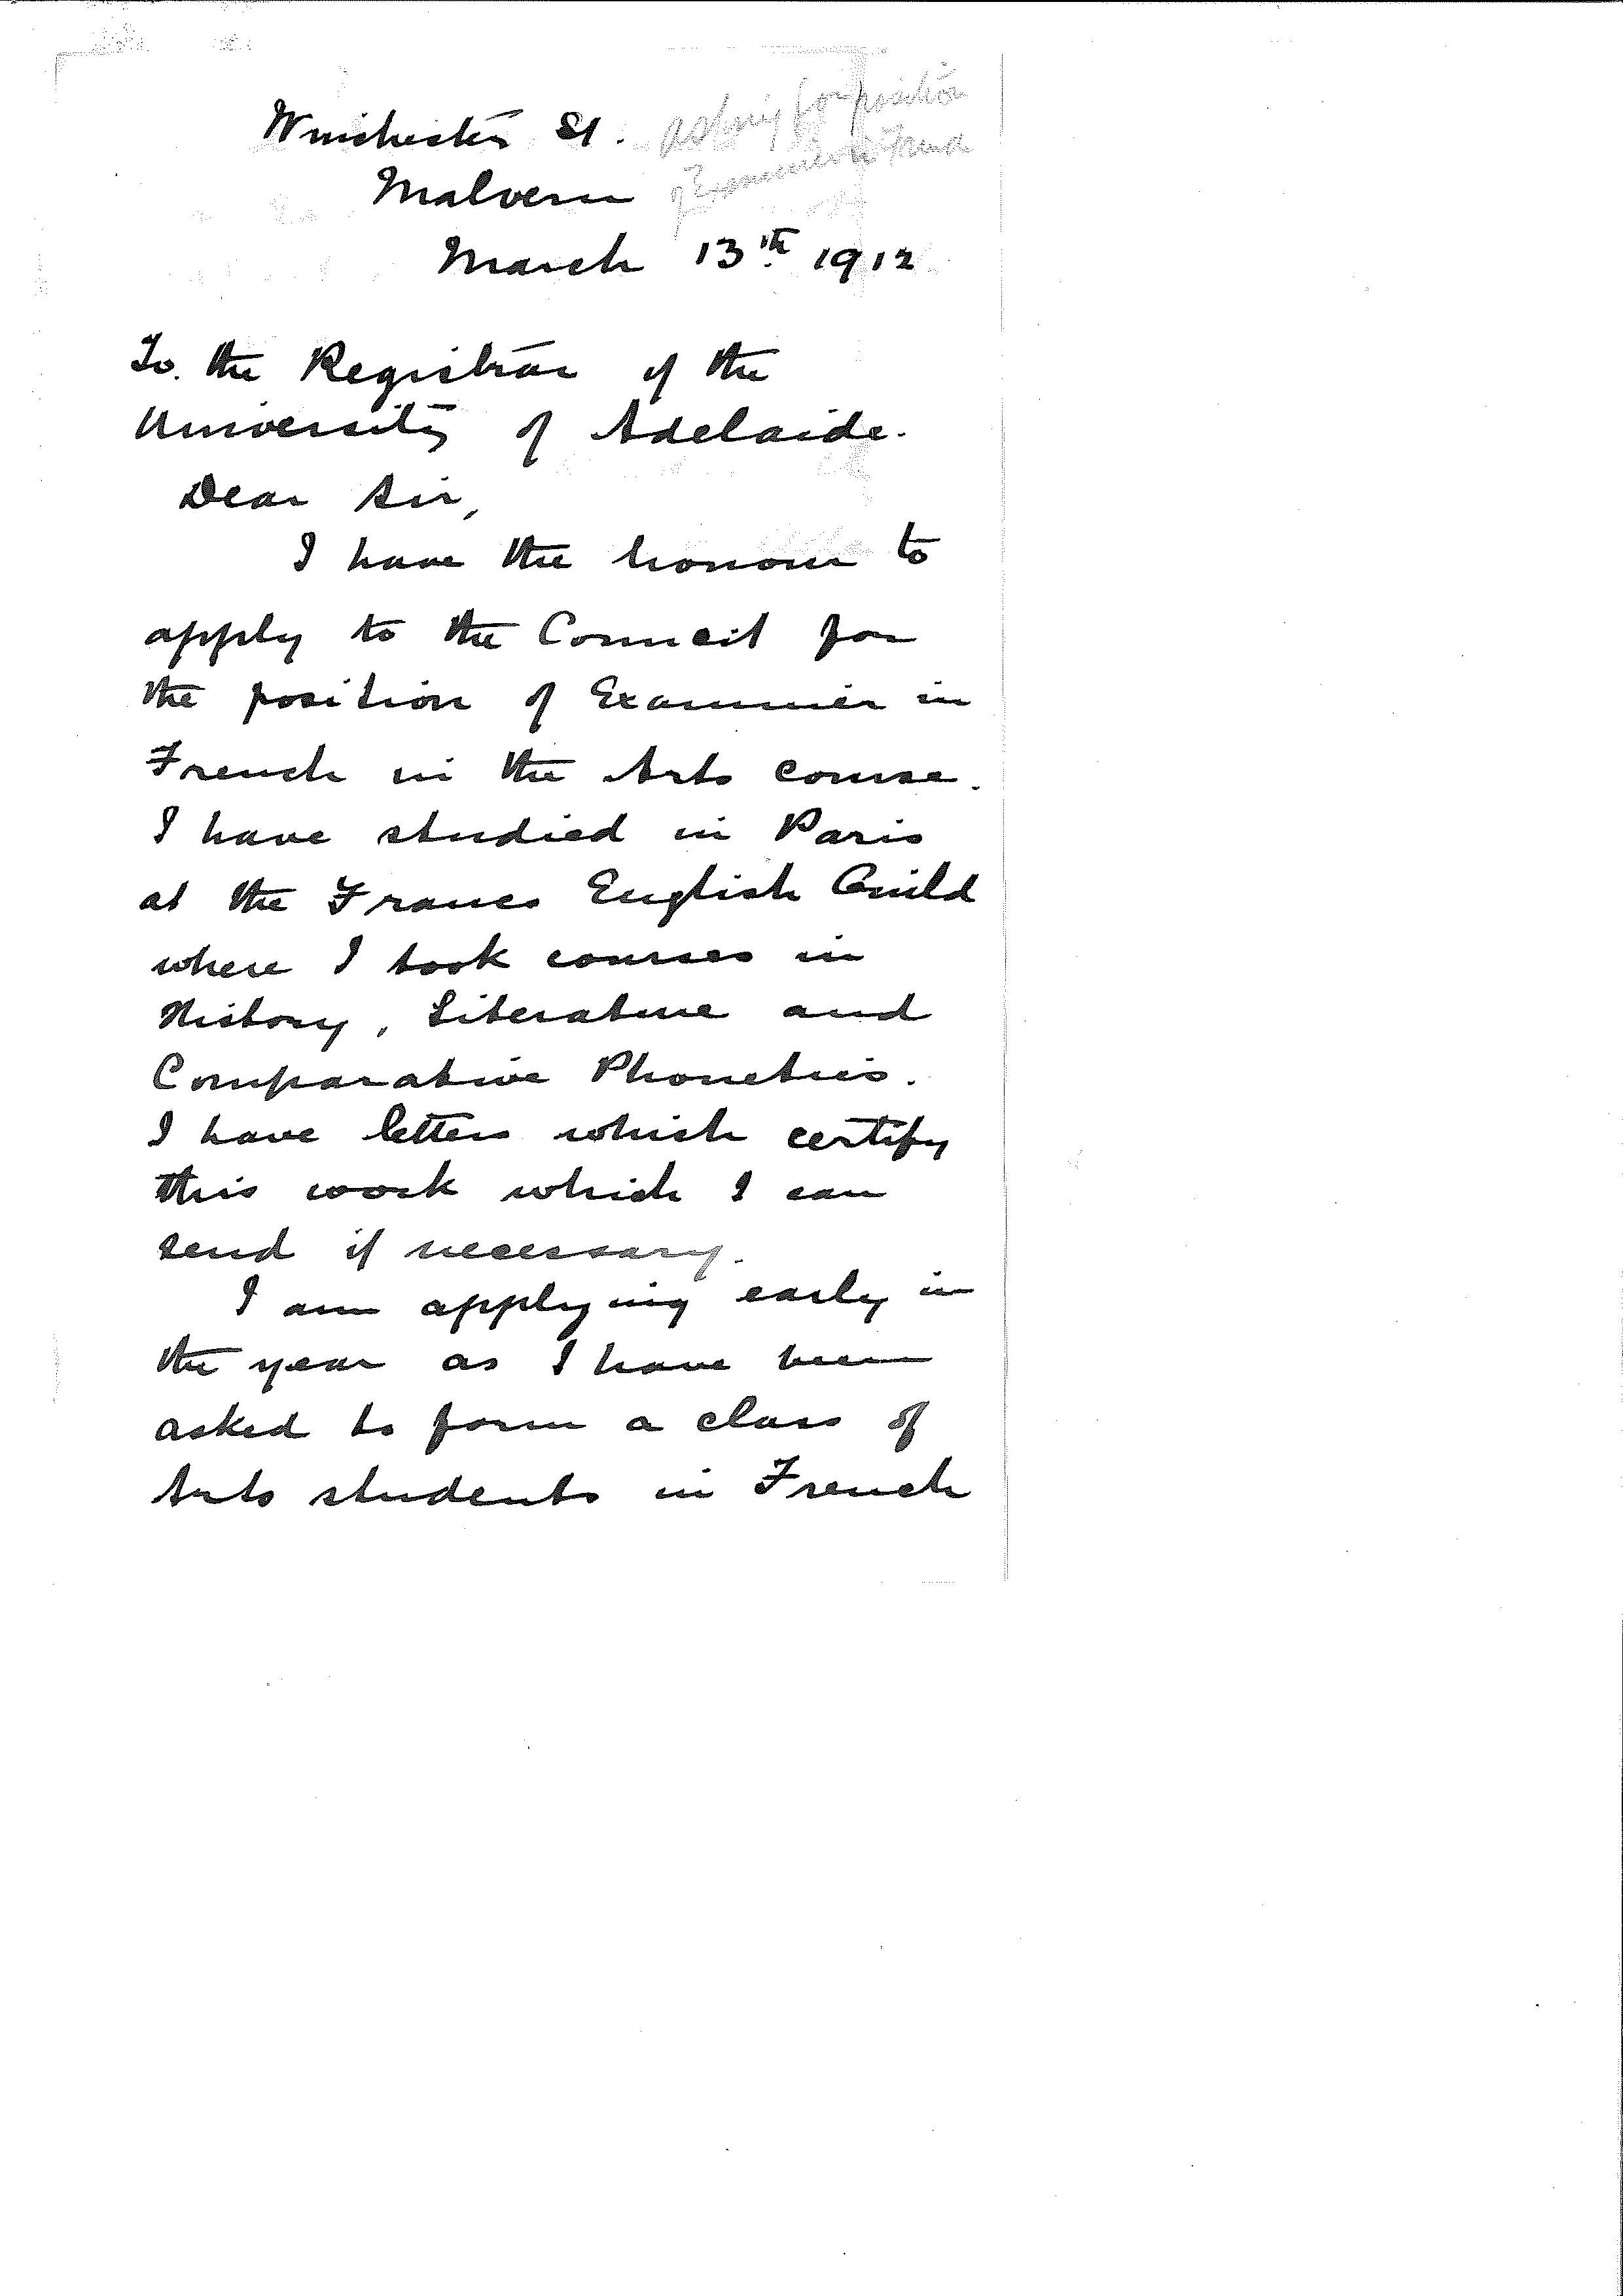 Winchester St.
asking for position
of Examiner in French
Malvern
March 13th 1912
To. the Registrar of the
University of Adelaide.
Dear Sir,
I have the honour to
apply to the Council for
the position of Examiner in
French in the Arts course.
I have studied in Paris
at the Franco English Guild
where I took courses in
History, Literature and
Comparative Phonetics.
I have letters which certify
this work which I can
send if necessary.
I am applying early in
the year as I have been
asked to form a class of
Arts students in French